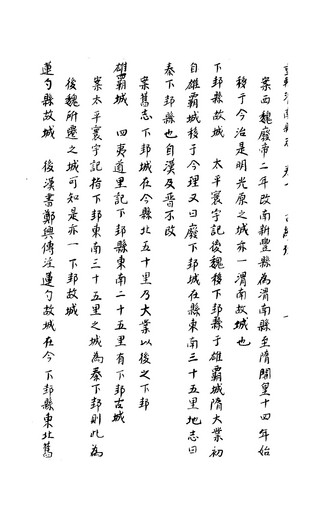 案西魏廢帝二年改南新豐縣為渭南縣至隋開皇十四年始
移于今治是明光原之城亦一渭南故城也
下邽縣故城 太平寰宇記後魏移下邽縣于雄霸城隋大業初
自雄霸城移于今理又曰廢下邽城在縣東南三十五里地志曰
秦下邽縣也自漢及晉不改
案舊志下邽城在今縣北五十里乃大業以後之下邽
雄霸城 四夷道里記下邽縣東南二十五里有下邽古城
案太平寰宇記指下邽東南三十五里之城為秦下邽則此為
後魏所遷之城可知是亦一下邽故城
蓮勺縣故城 後漢書鄭興傳注蓮勺故城在今下邽縣東北舊